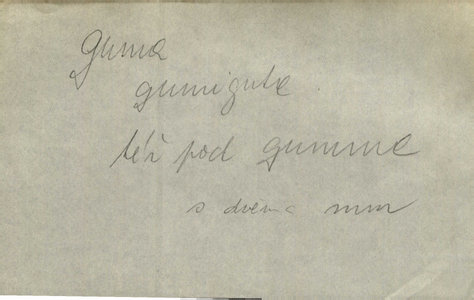 guma
gumiguta
též pod gumme
s dvema mm